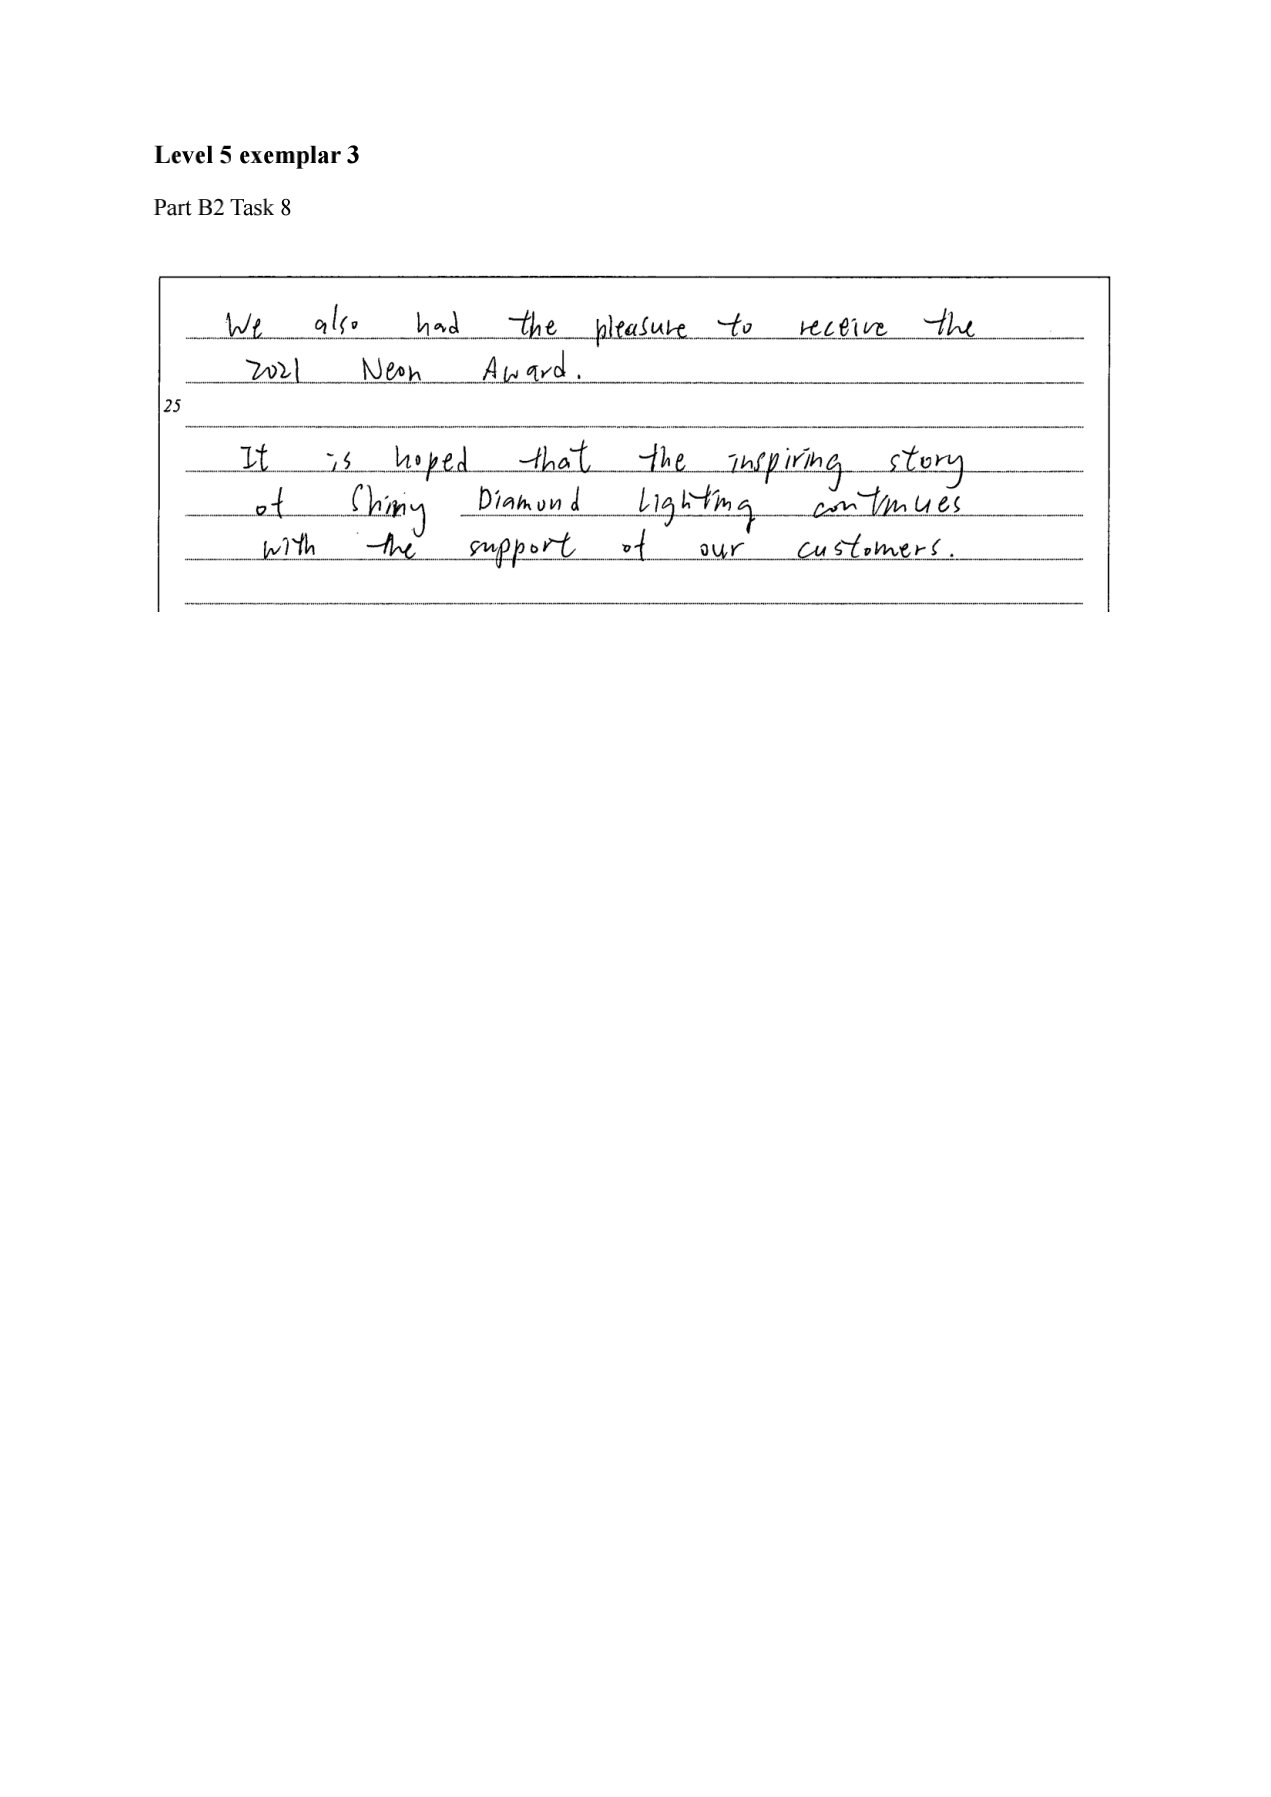 Level 5 exemplar 3
Part B2 Task 8
We also had the pleasure to receive the
2021 Neon Award.
25
It is hoped that the inspiring story
of Shiny Diamond Lighting continues
with the support of our customers.